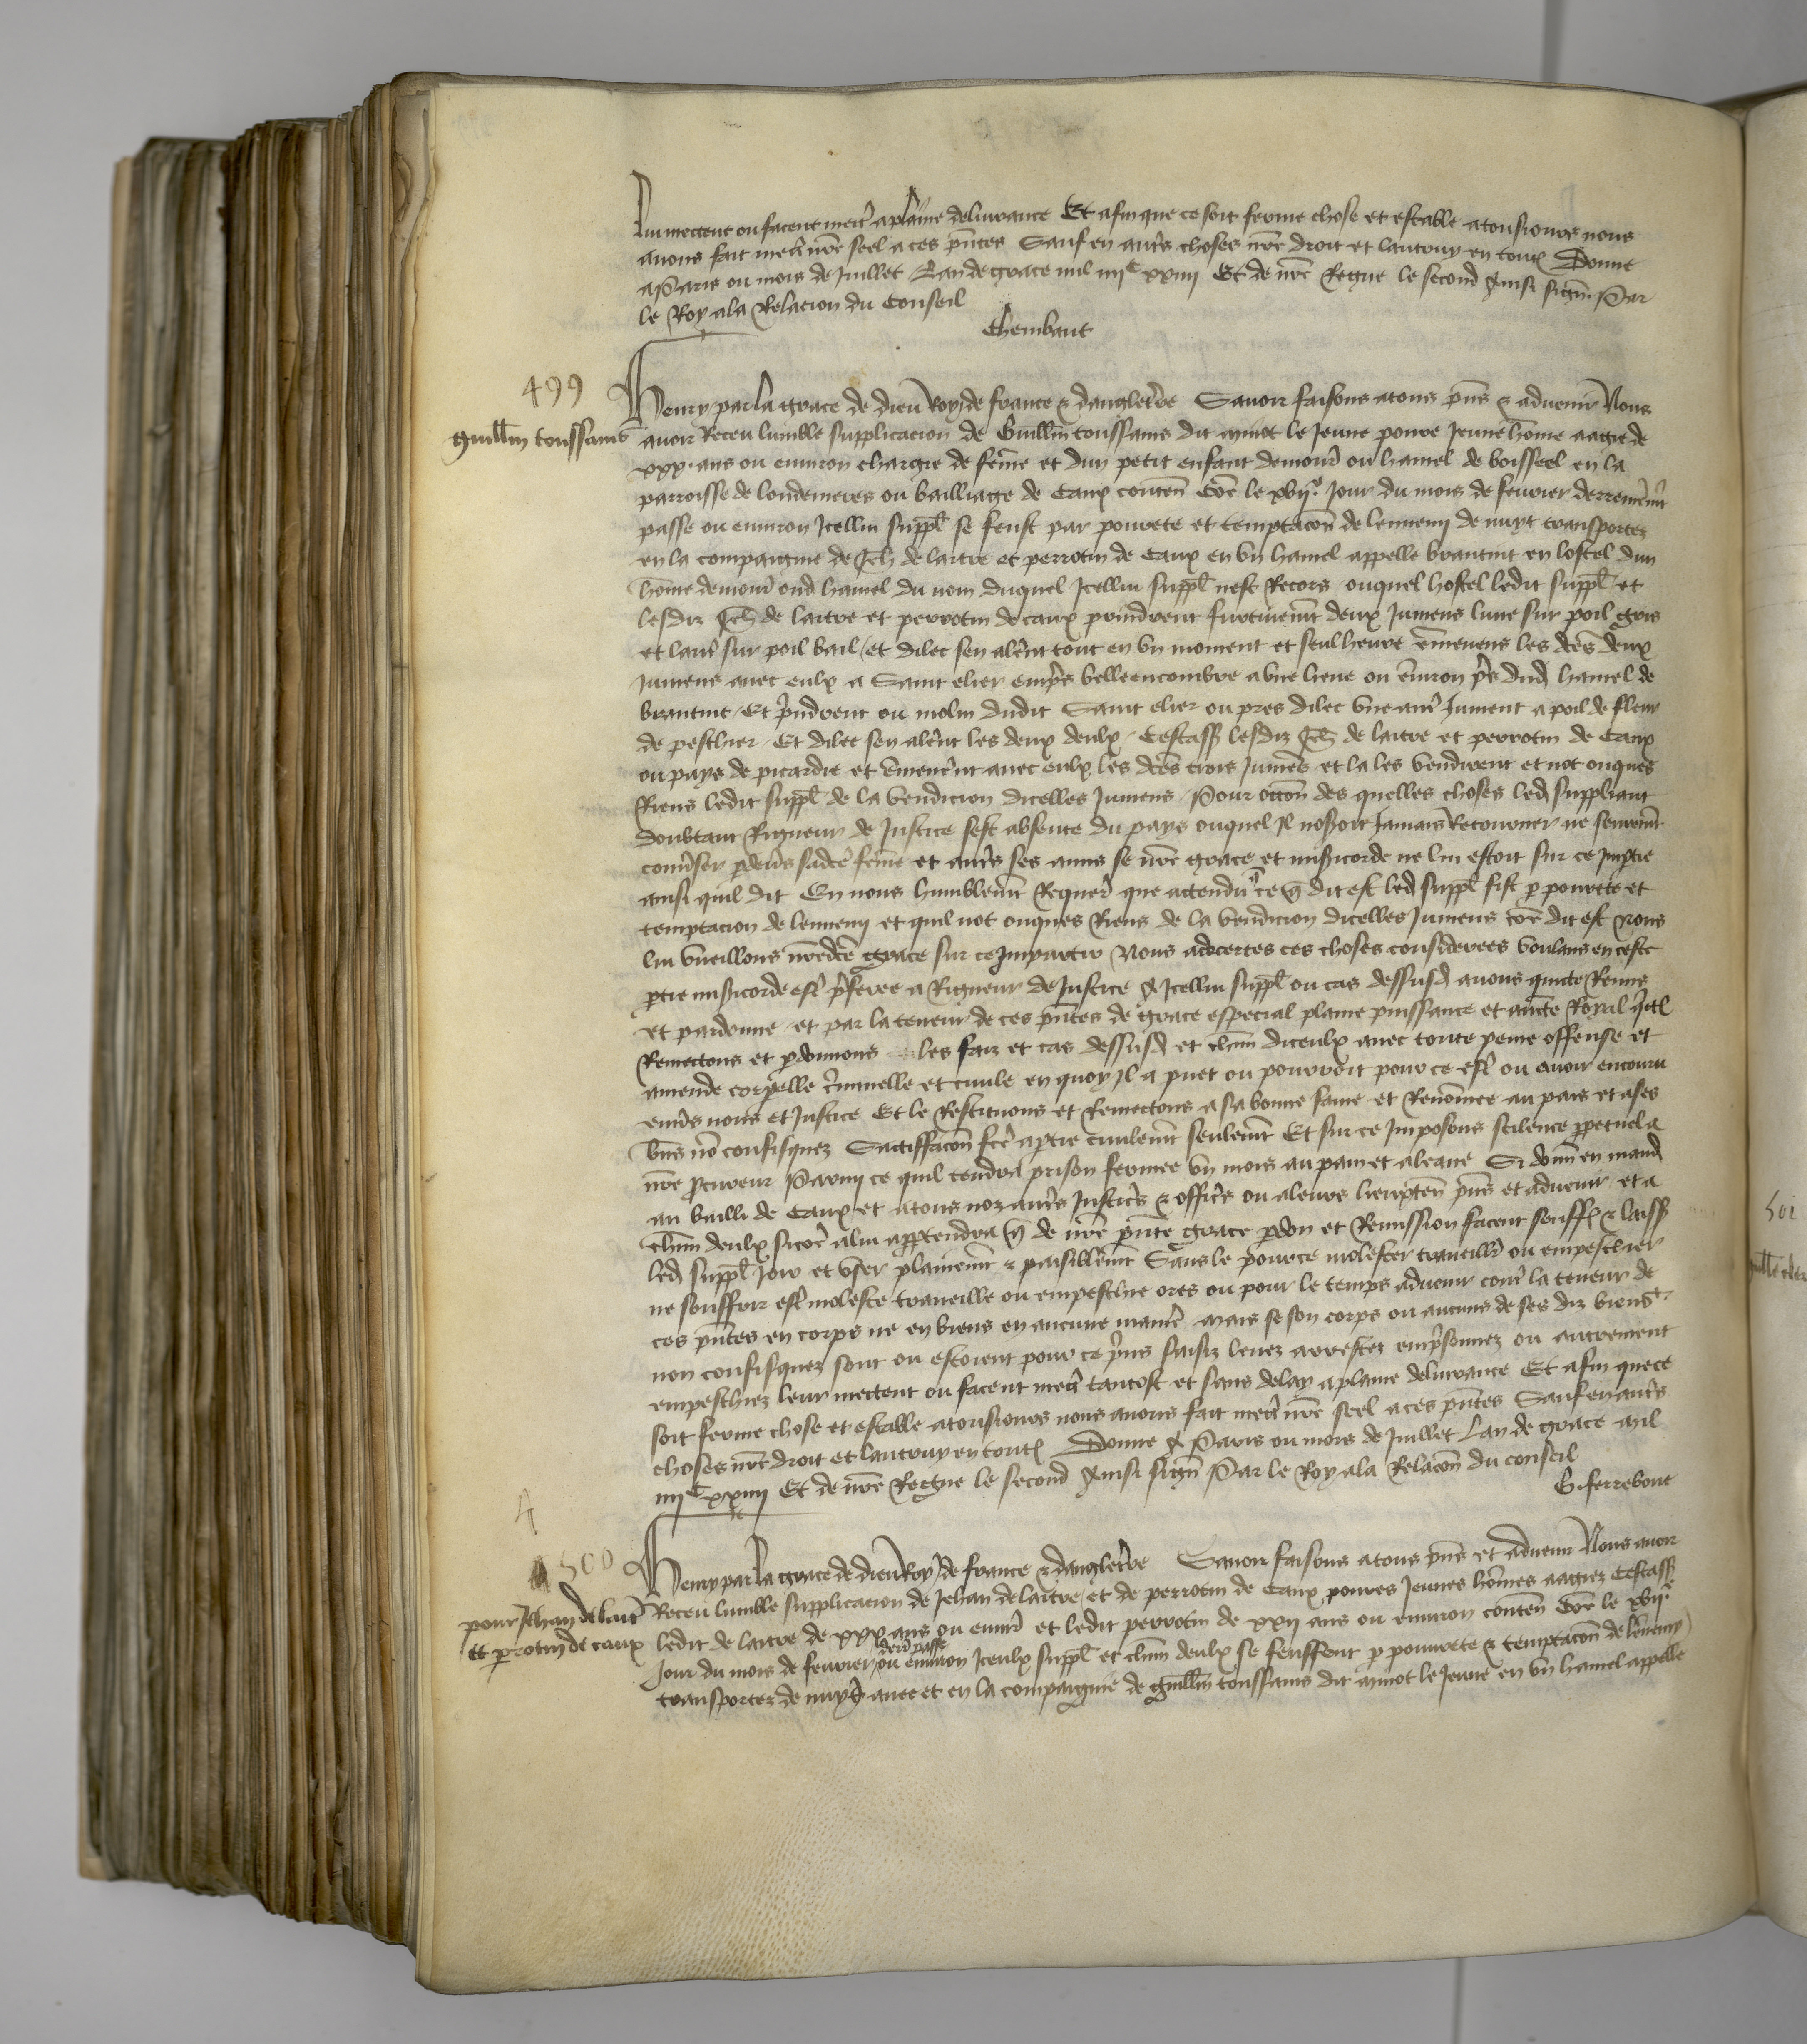 Lui mectent ou facent mectr̃ a plaine delivrance Et afin que ce soit ferme chose et estable atousiours nous
avons fait mectr̃ nr̃e seel a ces pñtes Sauf en autr̃s choses nr̃e droit et lautruy en tout Donne
a Paris ou mois de Juillet Lan de grace mil iiijc xxiiij Et de nr̃e Regne le second Ainsi signe Par
le Roy ala Relacion du Conseil
Thembaut
499
guillm̃ toussains
Henry par la grace de dieu Roy de france & dangletr̃re Savoir faisons atous pñs & advenir Nous
avoir Receu lumble supplicacion de Guillm̃ toussains dit amiot le Jeune povre Jeune hom̃e aagie de
xxx ans ou environ chargie de fem̃e et dun petit enfant demour̃ ou hamel de boisseel en la
parroisse de londinieres ou bailliage de Caux conten̄ Cõe le xvije Jour du mois de fevrier derrenem̃t
passe ou environ Icellui suppl̃ se feust par povrete et temptacõn de lennemi de nuyt transportez
en la compaignie de Jeh̃ de laitre et perrotin de Caux en un hamel appelle brantuit en lostel dun
hom̃e demour̃ oud hamel du nom duquel Icellui suppl̃ nest Recors ouquel hostel ledit suppl̃ et
lesdiz Jeh̃ de laitre et perrotin de caux prindrent furtivem̃t deux Jumens lune sur poil gris
et lautr̃ sur poil bail et dilec sen aler̃nt tout en un moment et seul heure em̃enens les dc̃es deux
Jumens avec eulx a Saint elier empr̃s belleencombre a une lieue ou environ pr̃s dud hamel de
brantuit Et pr̃ndrent ou molin dudit Saint elier ou pres dilec une autr̃ Jument a poil de fleur
de peschier Et dilec sen aler̃nt les deux deulx Cestass̃ lesdiz Jeh̃ de laitre et perrotin de Caux
ou pays de picardie et em̃ener̃nt avec eulx les dc̃es trois Jumẽs et la les vendirent et not onques
Riens ledit suppl̃ de la vendicion dicelles Jumens Pour occõn des quelles choses led suppliant
doubtant Rigueur de Justice sest absente du pays ouquel Il noseroit Jamais Retourner ne seurem̃t
conv̄ser p devr̃s sadcẽ fem̃e et autr̃s ses amis se nr̃e grace et miſicorde ne lui estoit sur ce Imptie
ainsi quil dit En nous humblem̃t Requer̃ que attendu ce q̃ dit est led suppl̃ fist p povrete et
temptacion de lennemi et quil not onques Riens de la vendicion dicelles Jumens cõe dit est Nous
lui vueillons nr̃edcẽ grace sur ce Impartir Nous adecertes ces choses considerees voulans en ceste
ptie miſicorde estr̃ pr̃feree a Rigueur de Justice A Icellui suppl̃ ou cas dessusd avons quicte Remis
et pardonne et par la teneur de ces pñtes de grace especial plaine puissance et aucte Royal q̃ct
Remectons et pdonnons les faiz et cas dessusd et chm̃ diceulx avec toute peine offense et
amende corp̃elle cr̃iminelle et civile en quoy Il a puet ou pourroit pour ce estr̃ ou avoir encouru
envr̃s nous et Justice Et le Restituons et Remectons a sa bonne fame et Renom̃ee au pais et ases
bñs nõ confisquez Sactiffacõn fcẽ a ptie civilem̃t seulem̃t Et sur ce Imposons scilence ppetuel a
nr̃e pcureur Parmi ce quil tendra prison fermee un mois au pain et aleaue Si donñ en mand
au bailli de Caux et atous noz autr̃s Justicr̃s & officr̃s ou aleurs lieuxten̄ pñs et advenir et a
chm̃ deulx sicõe alui apptendra q̃ de nr̃e pñte grace pdon et Remission facent seuffr̃ & laiss̃
led suppl̃ Joir et user plainem̃t & paisiblem̃t Sans le pour ce molester traveillr̃ ou empeschier
ne souffrir estr̃ moleste traveille ou empeschie ores ou pour le temps advenir contr̃ la teneur de
ces pñtes en corps ne en biens en aucune manier̃ mais se son corps ou aucuns de ses diz biens
non confisquez sont ou estoient pour ce pr̃ins saisiz levez arrestez empr̃sonnez ou autrement
empeschiez leur mectent ou facent mectr̃ tantost et sans delay aplaine delivrance Et afin quece
soit ferme chose et estable atousiours nous avons fait mectr̃ nr̃e seel aces pñtes Sauf en autr̃s
choses nr̃e droit et lautruy en tout Donne A Paris ou mois de Juillet Lan de grace mil
iiijc xxiiij Et de nr̃e Regne le second Ainsi signe Par le Roy ala Relacõn du conseil
G. ferrebouc
500
pour Jehan de laitr̃
et protin de caux
Henry par la grace de dieu Roy de france & dangletr̃re Savoir faisons atous pñs et advenir Nous avoir
Receu lumble supplicacion de Jehan de laitre et de perrotin de Caux povres Jeunes hõmes aagiez Cestass̃
ledit de laitre de xxx ans ou envir̃ et ledit perrotin de xxij ans ou environ conten̄ Cõe le xvije
derr̃ passe
Jour du mois de fevrier ou environ Iceulx suppl̃ et chm̃ deulx se feussent p povrete & temptacõn de lennemy
transportez de nuyt avec et en la compaignie de guillm̃ toussains dit amiot le Jeune en un hamel appelle
501